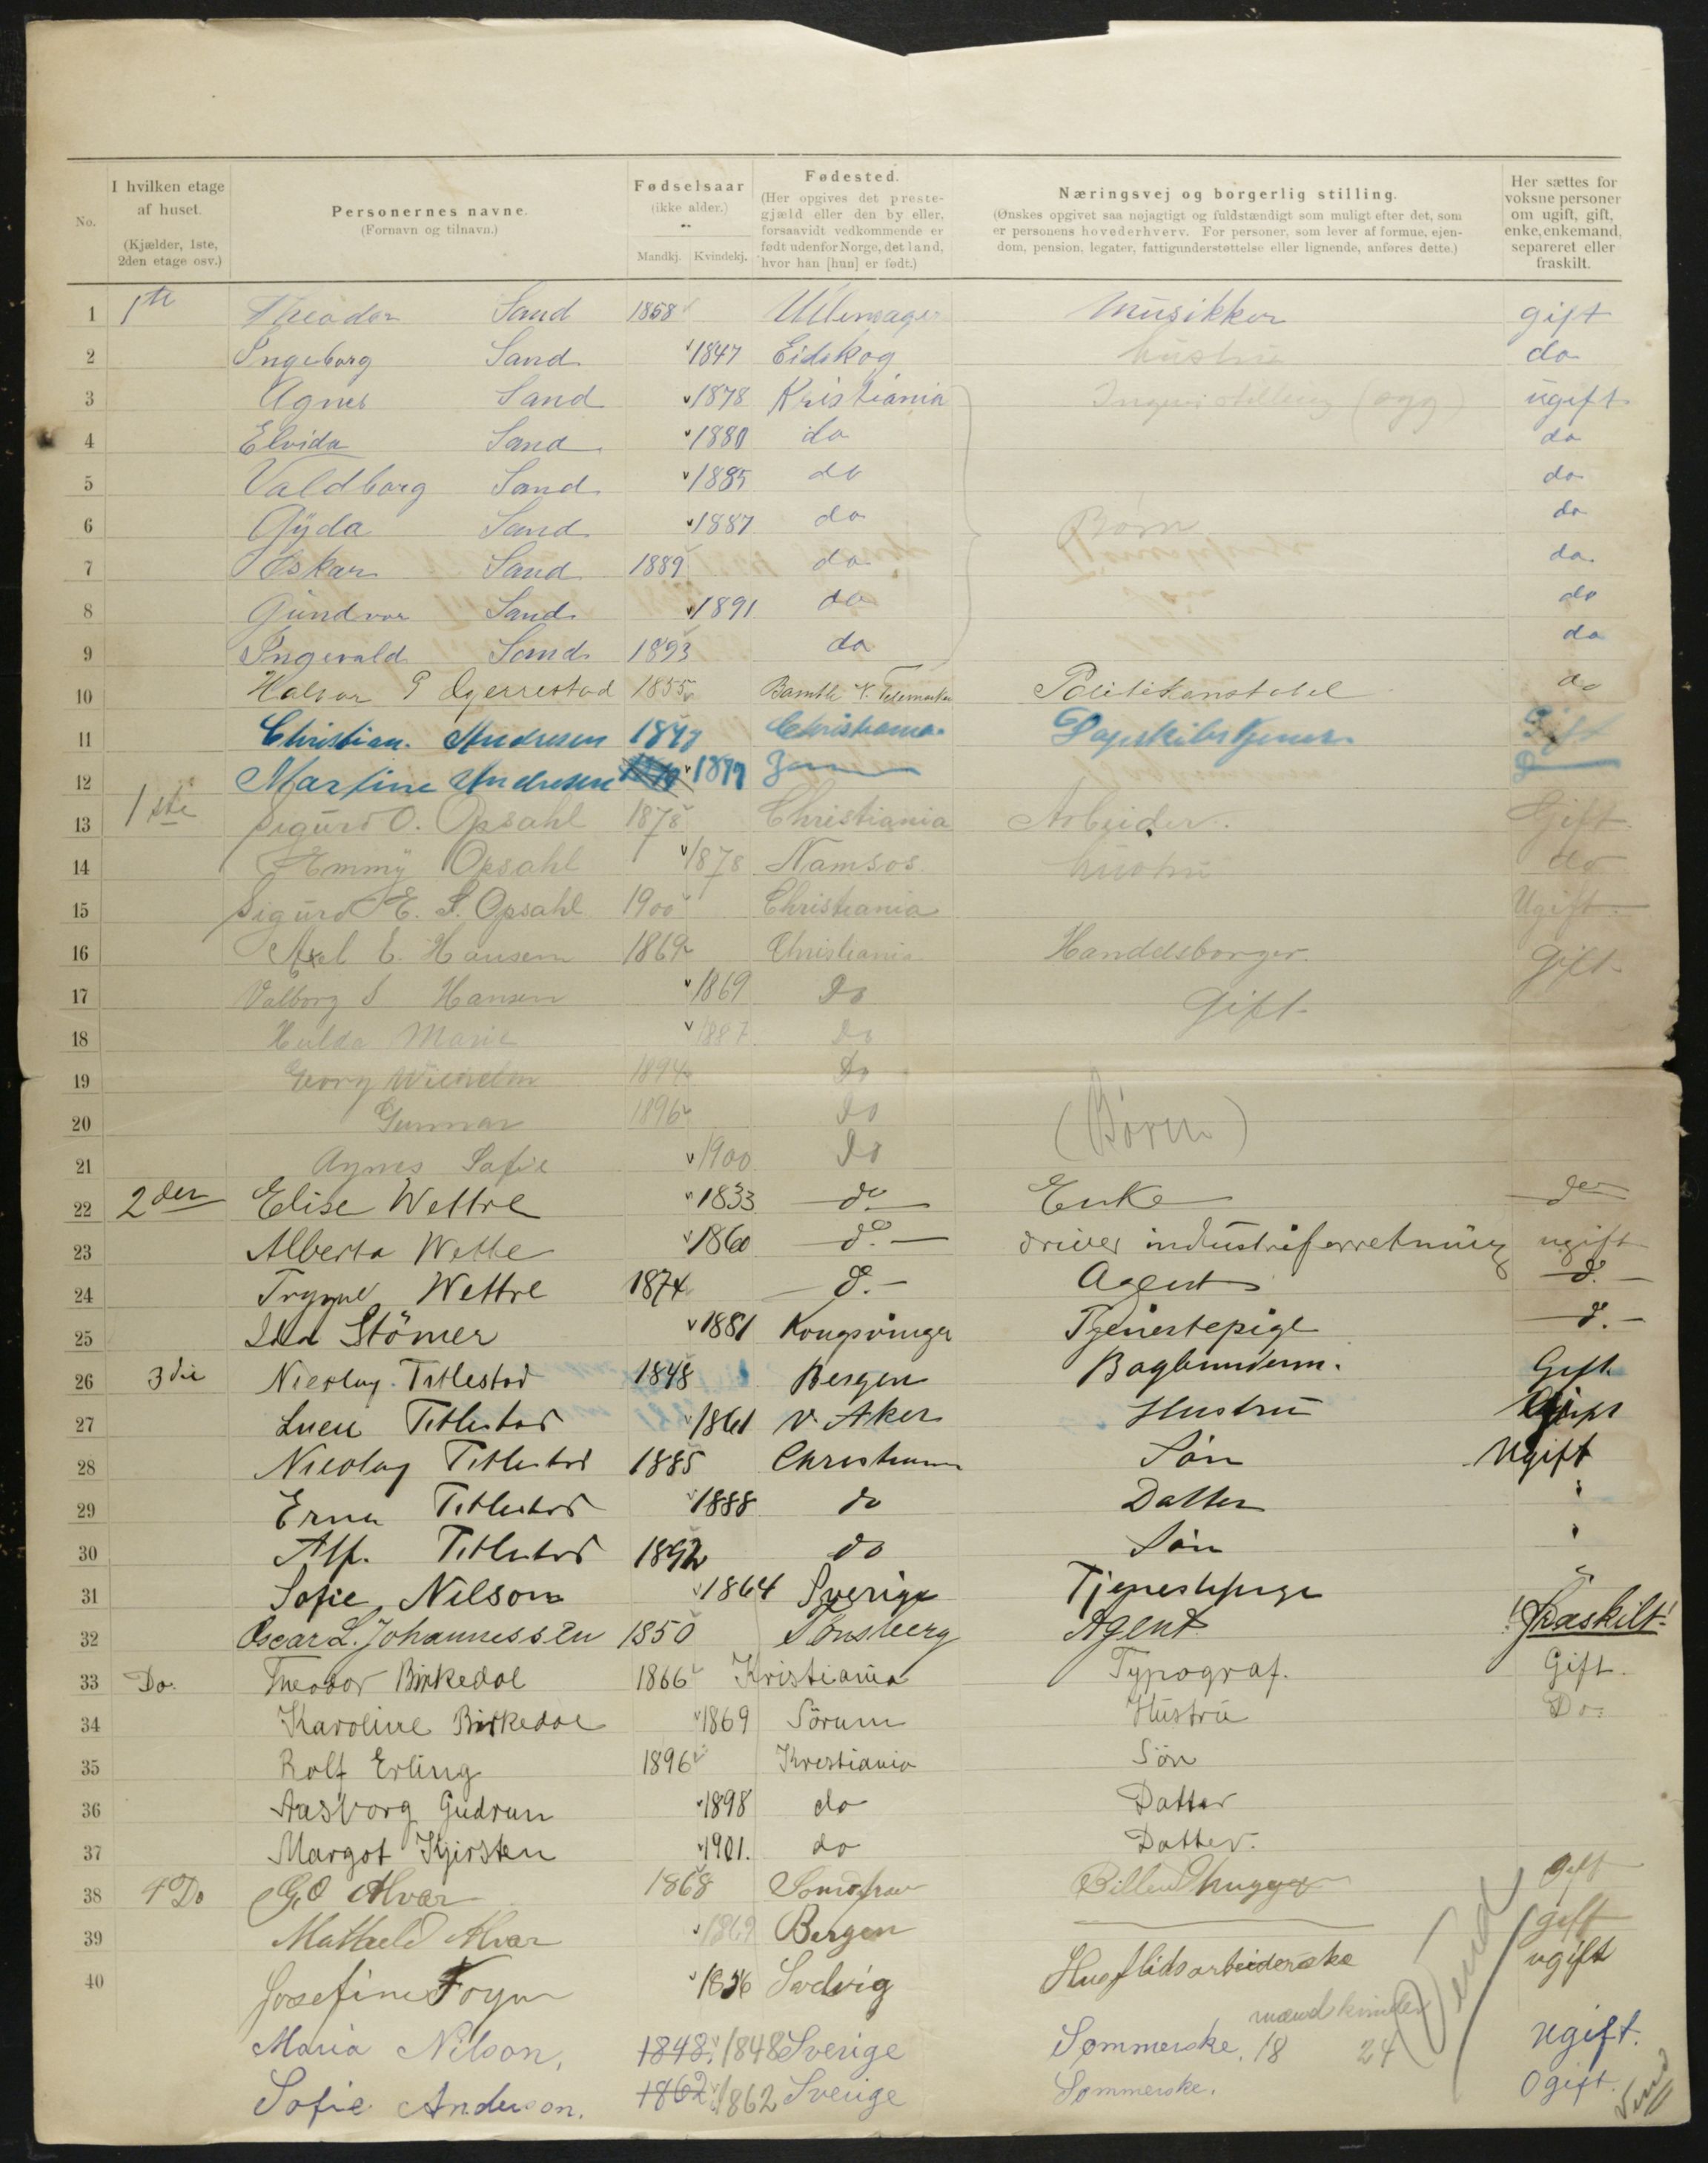 No.
I hvilken etage af huset. (Kjælder, 1ste, 2den etage osv.)
Personernes navne. (Fornavn og tilnavn.)
Fødselsaar (ikke alder.) Mandkj. Kvindekj.
Fødested. (Her opgives det prestegjæld eller den by eller, forsaavidt vedkommende er født udenfor Norge, det land, hvor han [hun] er født.)
Næringsvej og borgerlig stilling. (Ønskes opgivet saa nøjagtigt og fuldstændigt som muligt efter det, som er personens hovederhverv. For personer, som lever af formue, ejendom, pension, legater, fattigunderstøttelse eller lignende, anføres dette.)
Her sættes for voksne personer om ugift, gift, enke, enkemand, separeret eller fraskilt.
1 1ste Theodor Sand 1868 Ullensager Musikker gift
2 Ingeborg Sand 1847 Eidskog hustru do
3 Agnes Sand 1878 Kristiania Ingen stilling (syg) ugift
4 Elvida Sand 1880 do do
5 Valdborg Sand 1885 do do
6 Gyda Sand 1887 do Børn do
7 Oskar Sand 1889 do do
8 Gundvor Sand 1891 do do
9 Ingevald Sand 1893 do do
10 Halvor P 1855 Bamble Politikonstabel do
11 Christian Andresen Christiania Gift
12 Martine Andresen
13 1ste Sigurd O. Opsahl 1878 Christiania Arbeider. Gift
14 Emmy Opsahl 1878 Namsos hustru do
15 Sigurd E. S. Opsahl 1900 Christiania Ugift
16 Axel E. Hansen 1869 Christiania Handelsborger gift
17 Valborg S Hansen 1869 Do Gift
18 Hulda Marie 1887 Do
19 Georg Wilhelm 1894 Do
20 Gunnar 1896 Do (Børn)
21 Agnes Sofie 1900 Do
22 2den Elise Wettre 1833 do Enke do
23 Alberta Wette 1860 do driver industriforretning ugift
24 Trygve Wettre 1874 d. Agent d.
25 Ida Stömer 1881 Kongsvinger Tjenestepige d.
26 3die Nicolay Titlestad 1848 Bergen Bogbinderm. Gift
27 Titlestad 1861 v. Aker Hustru Gift
28 Nicolay Titlestad 1885 Christiania Sön Ugift
29 Erna Titlestad 1888 do Datter "
30 Alf. Titlestad 1892 do Sön "
31 Sofie Nilson 1864 Sverige Tjenestepige "
32 Oscar L. Johannessen 1850 Tönsberg Agent ! fraskilt !
33 Do. Theodor Birkedal 1866 Kristiania Typograf. Gift.
34 Karoline Birkedal 1869 Sörum Hustru Do.
35 Rolf Erling 1896 Kristiania Sön
36 Aasborg Gudrun 1898 do Datter
37 Margot Kjirsten 1901. do Datter.
38 4 Do G. O Alvær 1868 Billedhugger gift
39 Mathild Alvær 1869 Bergen gift
40 Josefine Foyn 1856 Husflidsarbeiderske ugift
Maria Nilson, 1848. 1848 Sverige Sømmerske. ugift.
mænd kvinder
18 24
Sofie Anderson. 1862 1862 Sverige Sømmerske. Ogift.
Vend
Vend